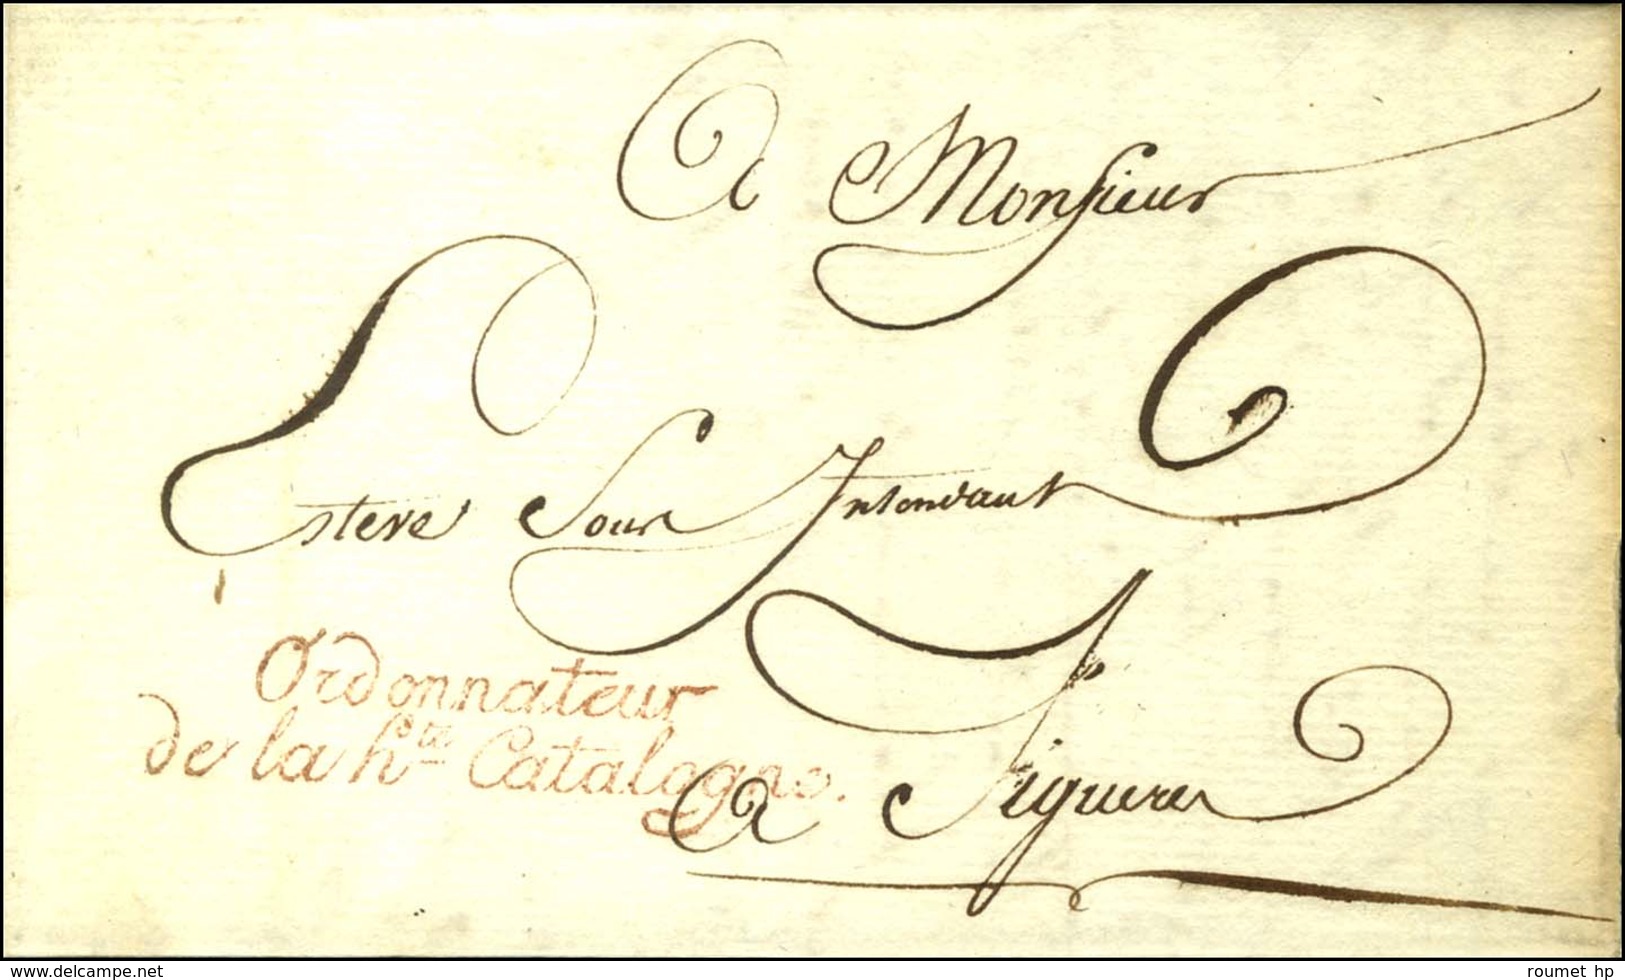 A Monsieur
Esteve Sous Intendant
Ordonnateur
de la hte Catalogne.
A Figueres
www.delcampe.net
roumet hp